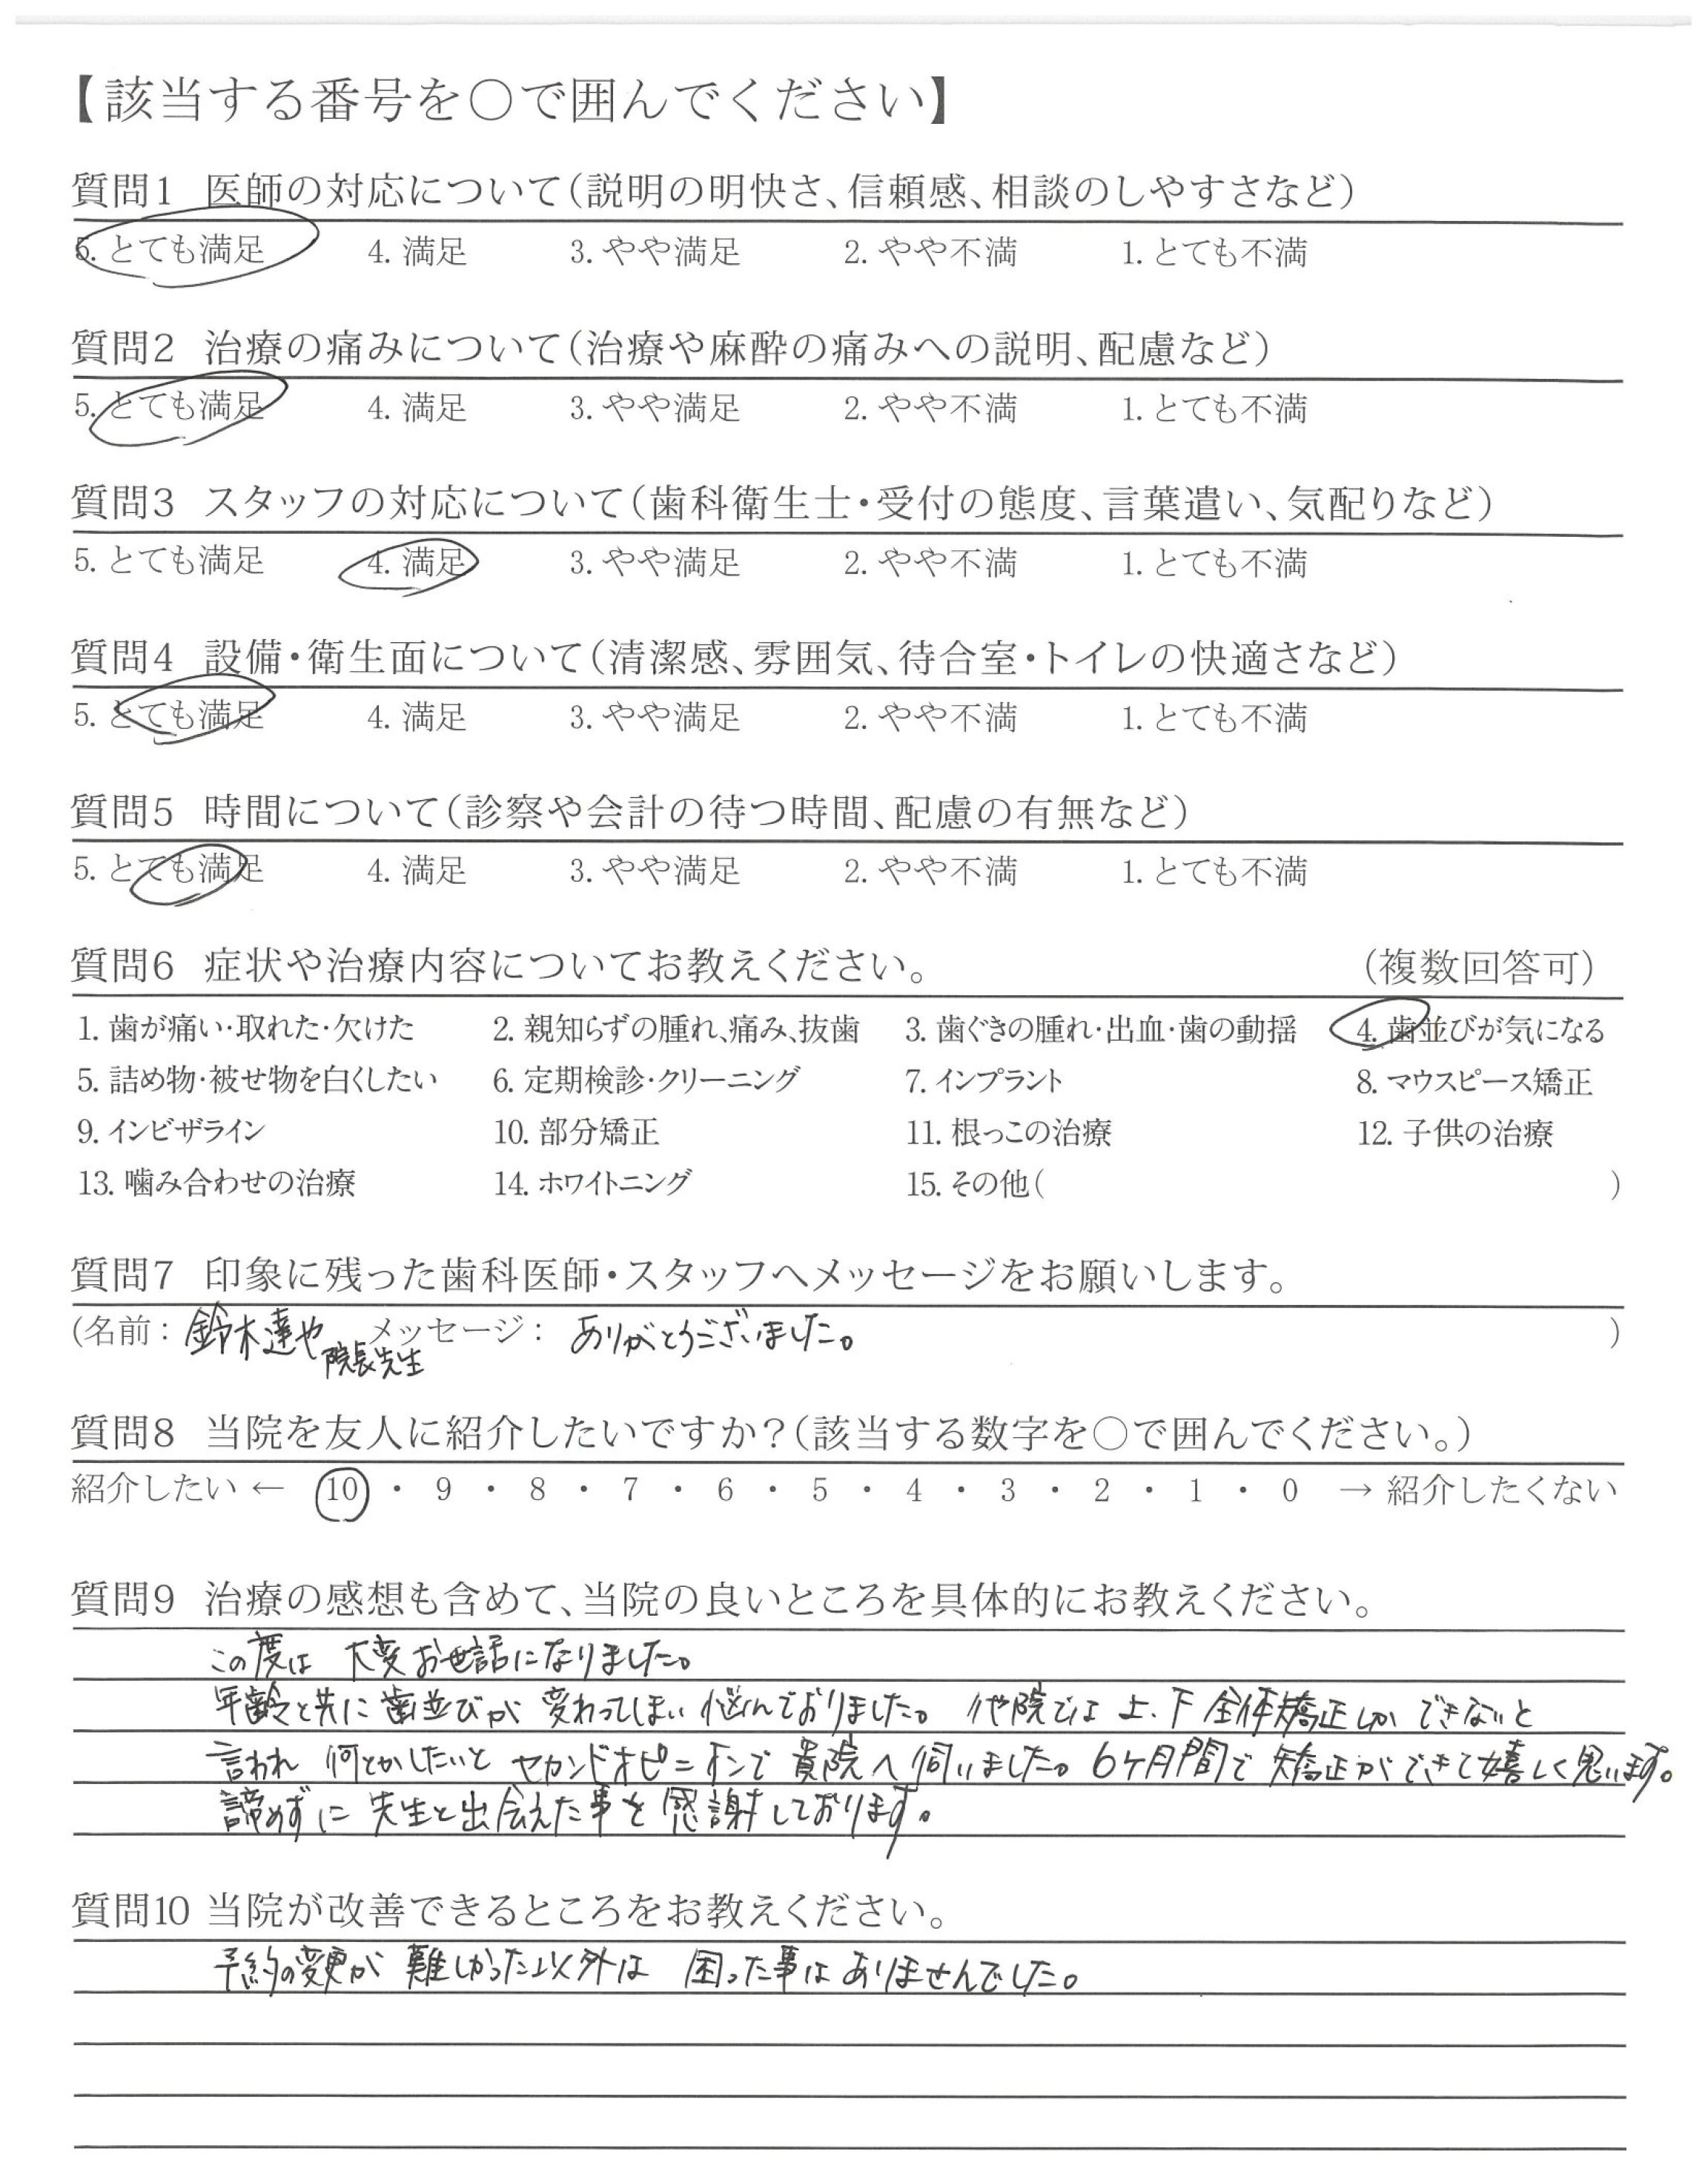 【該当する番号を○で囲んでください】
質問1 医師の対応について(説明の明快さ、信頼感、相談のしやすさなど)
5. とても満足 4. 満足 3. やや満足 2. やや不満 1. とても不満
質問2 治療の痛みについて(治療や麻酔の痛みへの説明、配慮など)
5. とても満足 4. 満足 3. やや満足 2. やや不満 1. とても不満
質問3 スタッフの対応について(歯科衛生士・受付の態度、言葉遣い、気配りなど)
5. とても満足 4. 満足 3. やや満足 2. やや不満 1. とても不満
質問4 設備・衛生面について(清潔感、雰囲気、待合室・トイレの快適さなど)
5. とても満足 4. 満足 3. やや満足 2. やや不満 1. とても不満
質問5 時間について(診察や会計の待つ時間、配慮の有無など)
5. とても満足 4. 満足 3. やや満足 2. やや不満 1. とても不満
質問6 症状や治療内容についてお教えください。 (複数回答可)
1. 歯が痛い・取れた・欠けた 2. 親知らずの腫れ、痛み、抜歯 3. 歯ぐきの腫れ・出血・歯の動揺 4. 歯並びが気になる
5. 詰め物・被せ物を白くしたい 6. 定期検診・クリーニング 7. インプラント 8. マウスピース矯正
9. インビザライン 10. 部分矯正 11. 根っこの治療 12. 子供の治療
13. 噛み合わせの治療 14. ホワイトニング 15. その他( )
質問7 印象に残った歯科医師・スタッフへメッセージをお願いします。
(名前: 鈴木達也 院長先生 メッセージ: ありがとうございました。 )
質問8 当院を友人に紹介したいですか?(該当する数字を○で囲んでください。)
紹介したい ← 10 ・ 9 ・ 8 ・ 7 ・ 6 ・ 5 ・ 4 ・ 3 ・ 2 ・ 1 ・ 0 → 紹介したくない
質問9 治療の感想も含めて、当院の良いところを具体的にお教えください。
この度は 大変お世話になりました。
年齢と共に歯並びが変わってしまい悩んでおりました。他院では上、下全体矯正しかできないと
言われ 何とかしたいと セカンドオピニオンで 貴院へ伺いました。6ケ月間で 矯正ができて嬉しく思います。
諦めずに 先生と出会えた事を感謝しております。
質問10 当院が改善できるところをお教えください。
予約の変更が 難しかった以外は 困った事はありませんでした。